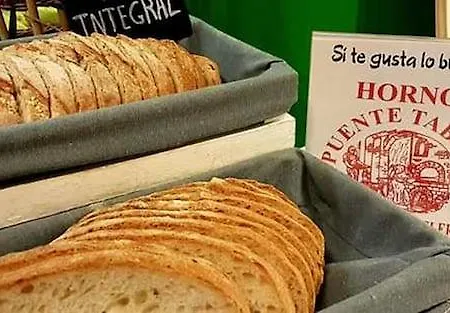 INTEGRAL
Si te gusta lo bu
HORNO
PUENTE TAB